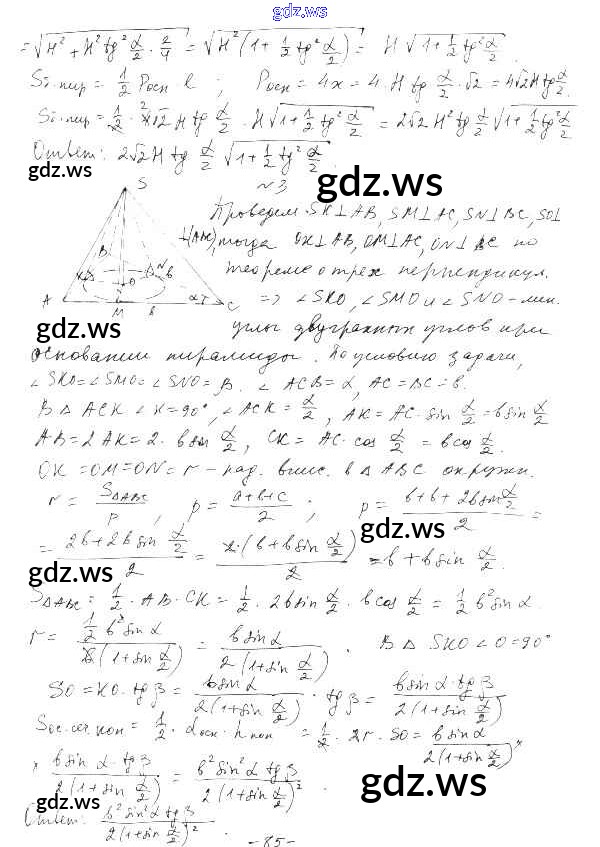 gdz.ws
= √(H² + H² tg² α/2 · 2/4) = √(H² (1 + 1/2 tg² α/2)) = H √(1 + 1/2 tg² α/2)
Sб.пир = 1/2 Pосн l ; Pосн = 4x = 4 · H tg α/2 · √2 = 4√2 H tg α/2
Sб.пир = 1/2 · 4√2 H tg α/2 · H √(1 + 1/2 tg² α/2) = 2√2 H² tg α/2 √(1 + 1/2 tg² α/2)
Ответ: 2√2 H tg α/2 √(1 + 1/2 tg² α/2).
gdz.ws
gdz.ws
№3
Проведем SK⊥AB, SM⊥AC, SN⊥BC, SO⊥
⊥(ABC), тогда OK⊥AB, OM⊥AC, ON⊥BC по
теореме о трех перпендикул.
=> ∠SKO, ∠SMO и ∠SNO – лин.
углы двугранных углов при
S
B
K
N
O
б
A
M
б
α
C
gdz.ws
gdz.ws
основании пирамиды. По условию задачи,
∠SKO = ∠SMO = ∠SNO = β. ∠ACB = α, AC = BC = b.
В △ ACK ∠K = 90°, ∠ACK = α/2, AK = AC · sin α/2 = b sin α/2
AB = 2AK = 2 · b sin α/2, CK = AC · cos α/2 = b cos α/2.
OK = OM = ON = r – рад. впис. в △ ABC окружн.
r = S△ABC / p, p = (a+b+c)/2 ; p = (b + b + 2b sin α/2)/2 =
gdz.ws
= (2b + 2b sin α/2)/2 = (2 · (b + b sin α/2))/2 = b + b sin α/2.
gdz.ws
gdz.ws
S△ABC = 1/2 · AB · CK = 1/2 · 2b sin α/2 · b cos α/2 = 1/2 b² sin α.
r = (1/2 b² sin α)/(b(1 + sin α/2)) = (b sin α)/(2(1 + sin α/2)). В △ SKO ∠O = 90°
SO = KO · tg β = (b sin α)/(2(1 + sin α/2)) · tg β = (b sin α · tg β)/(2(1 + sin α/2))
Sос.сеч кон = 1/2 · dосн · hкон = 1/2 · 2r · SO = (b sin α)/(2(1 + sin α/2)) ×
× (b sin α · tg β)/(2(1 + sin α/2)) = (b² sin² α tg β)/(2(1 + sin α/2))
gdz.ws
gdz.ws
Ответ: (b² sin² α tg β)/(2(1 + sin α/2)²).
– 85 –